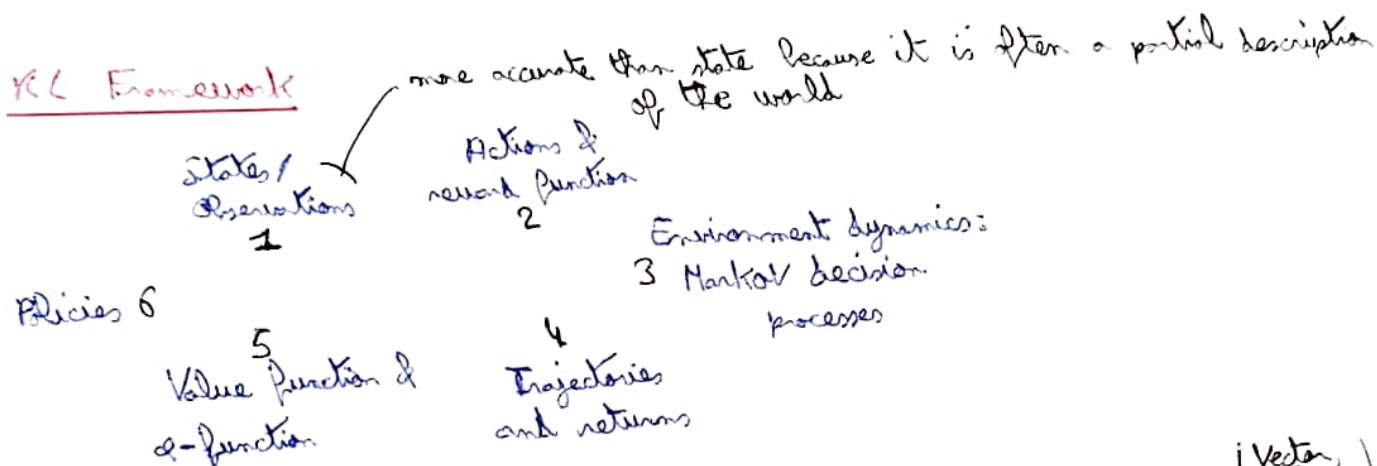 RL Framework
more accurate than state because it is often a partial description
of the world
States/
Observations
1
Actions &
reward function
2
Environment dynamics:
3 Markov decision
processes
4
Trajectories
and returns
5
Value function &
Q-function
Policies 6
Vector,